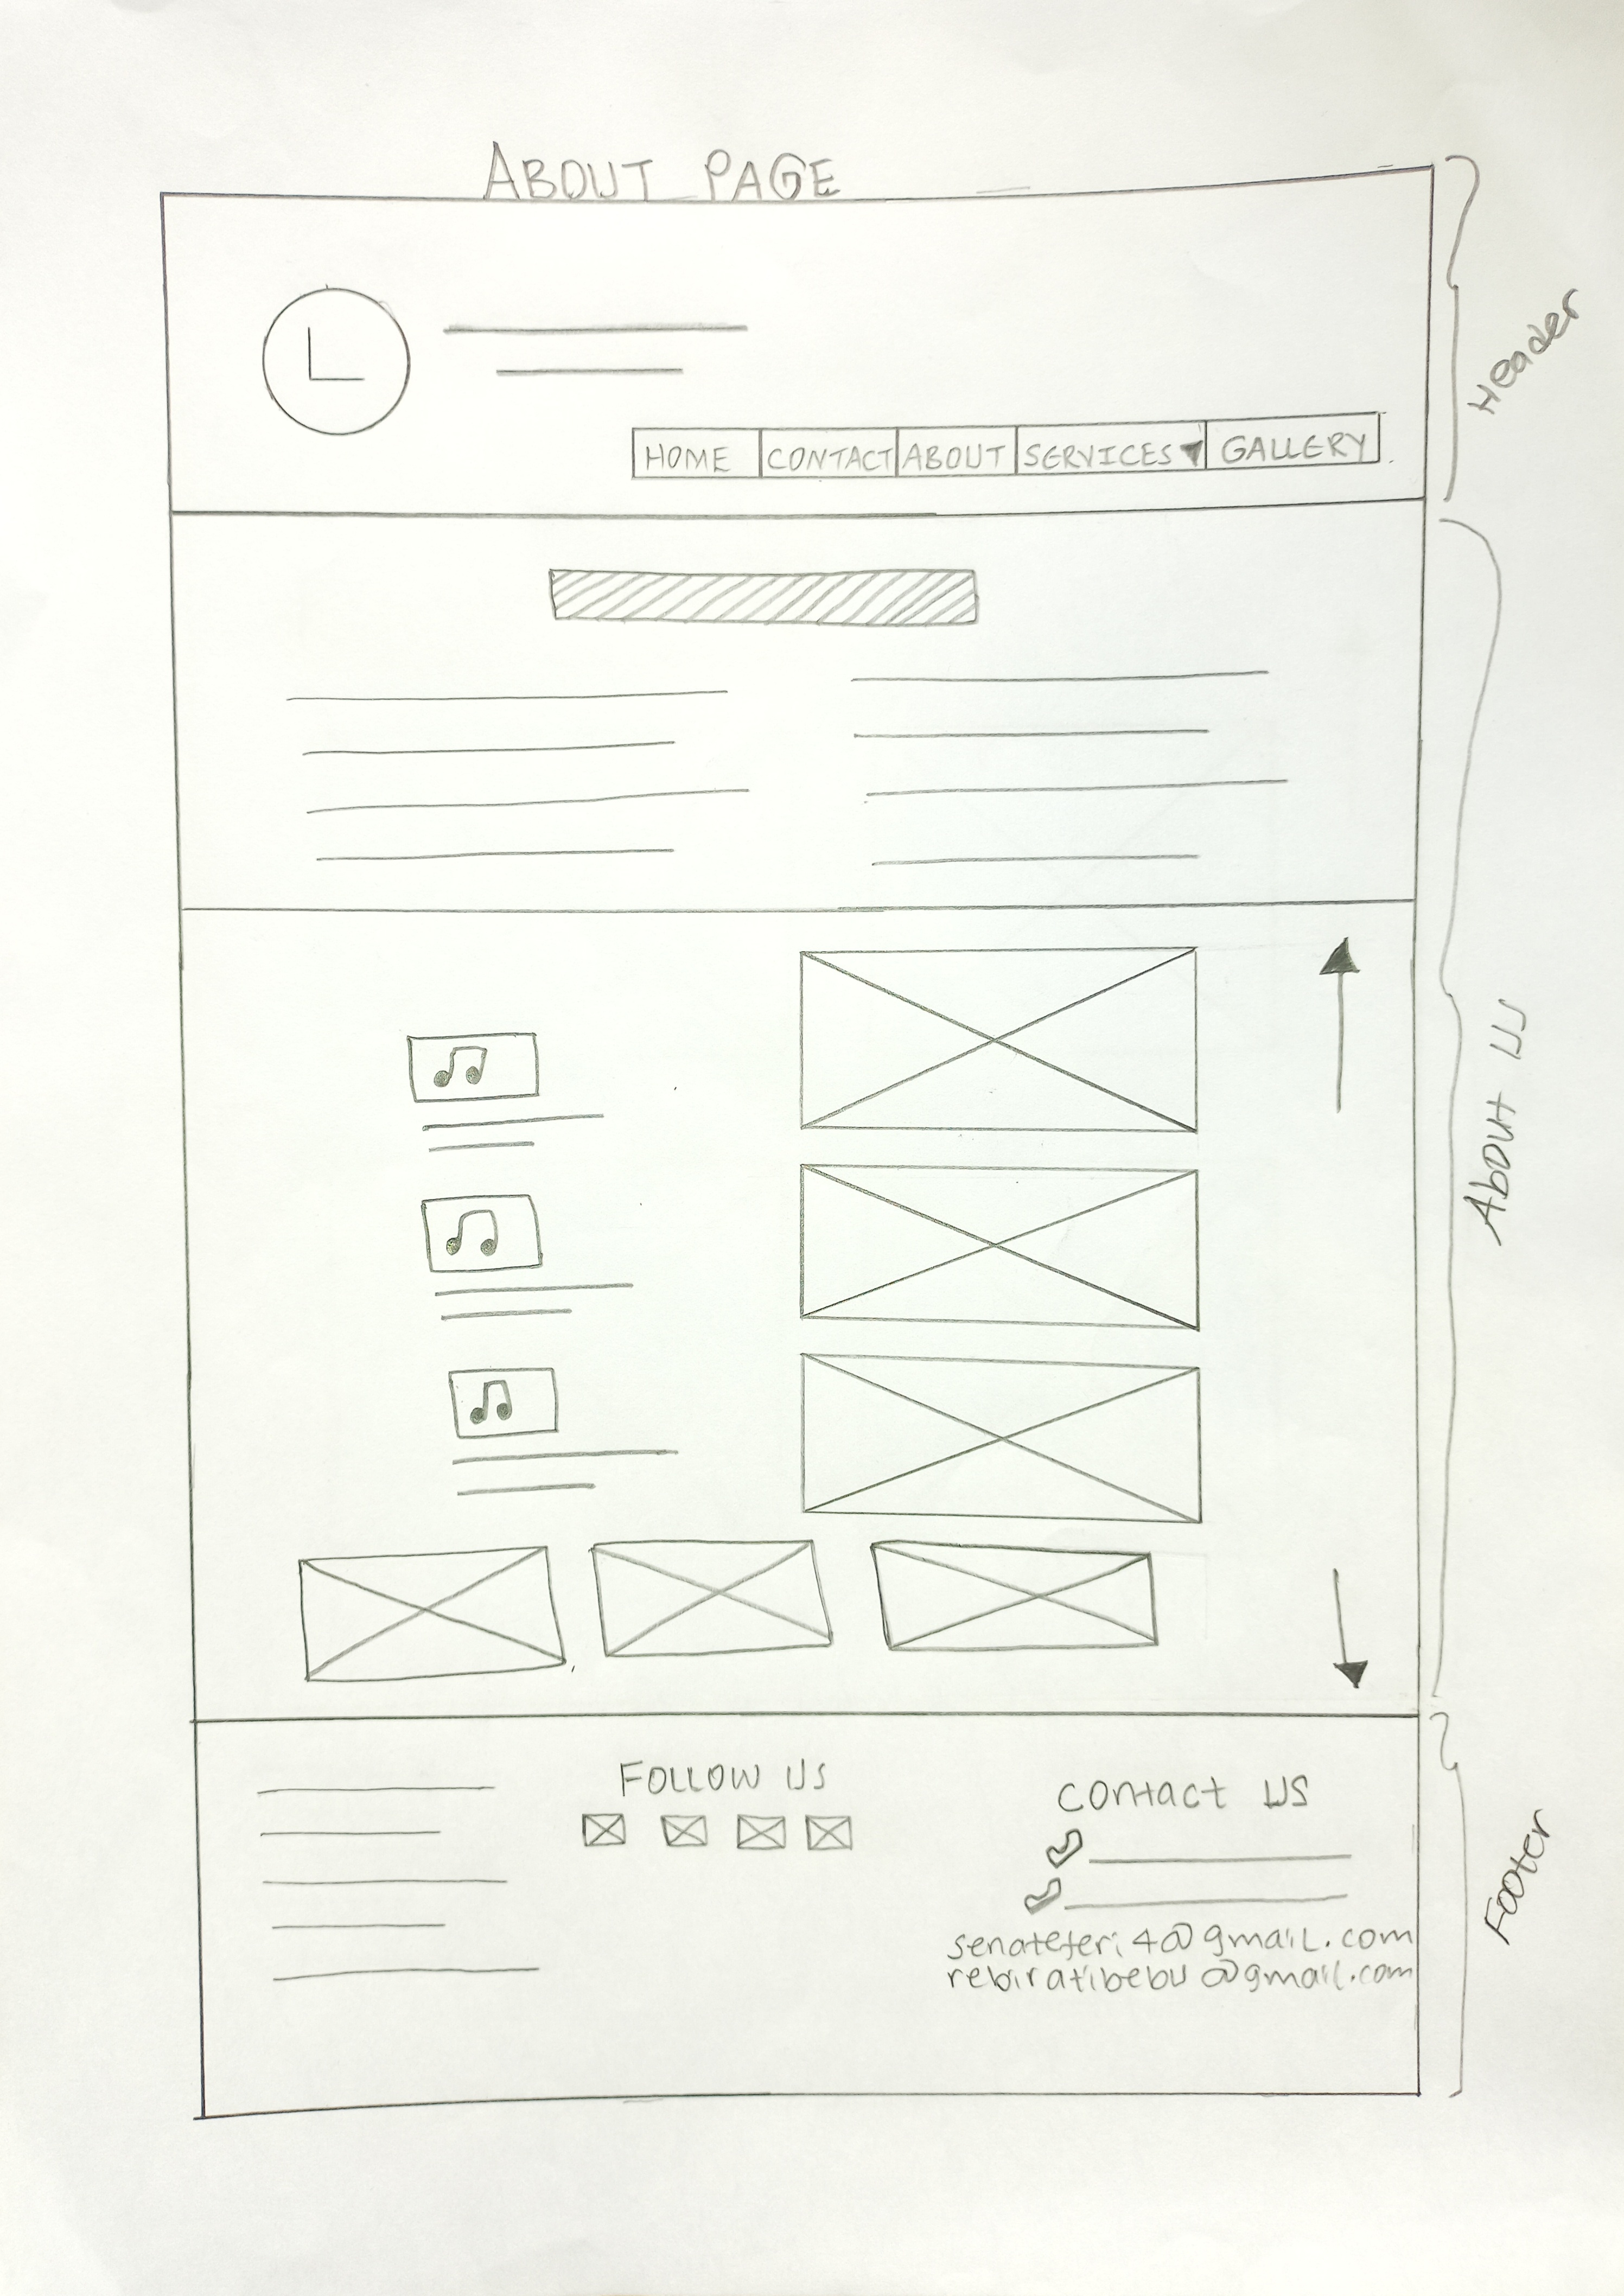 ABOUT PAGE
L
HOME CONTACT ABOUT SERVICES GALLERY
Header
About Us
FOLLOW US
Contact US
senateferi4@gmail.com
rebiratibebu@gmail.com
Footer